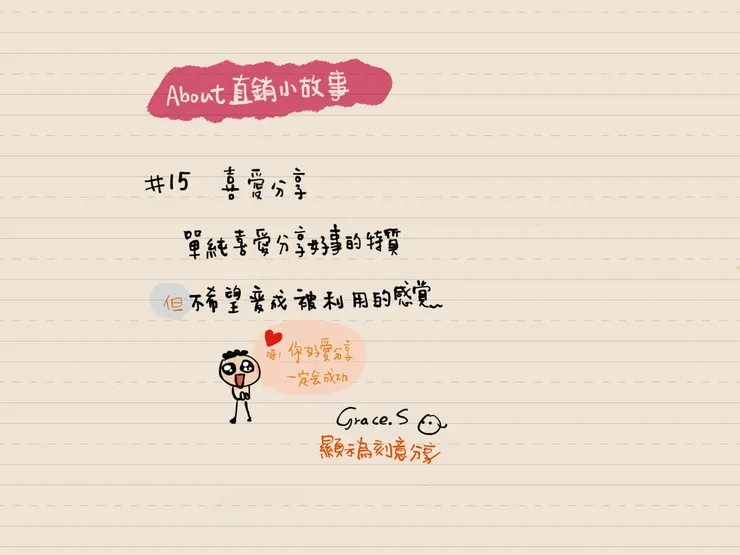 About直銷小故事
#15 喜愛分享
單純喜愛分享好事的特質
但不希望變成被利用的感覺~
呀!你好愛分享
一定会成功
Grace.S
顯示為刻意分享